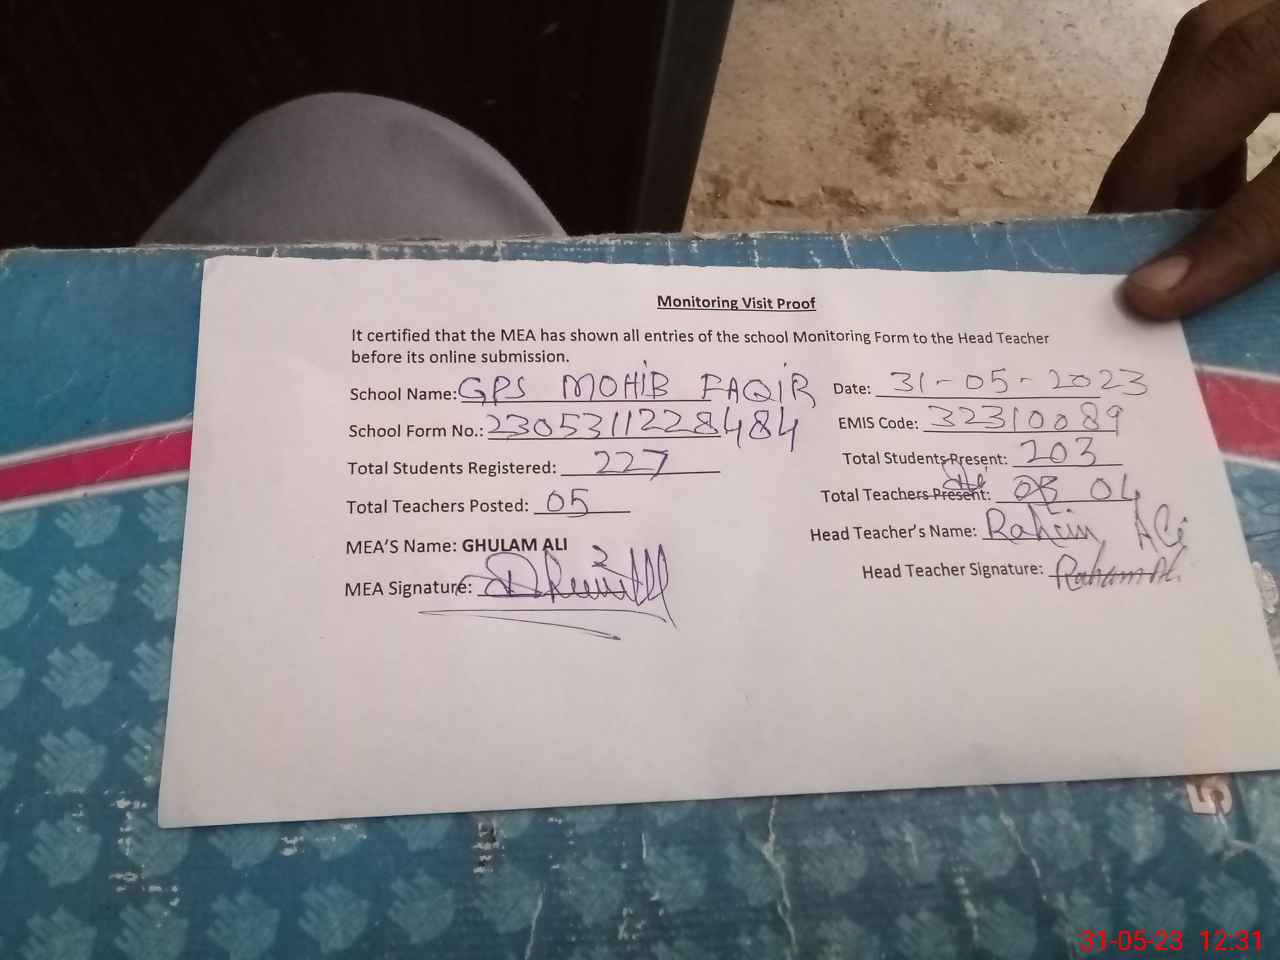 Monitoring Visit Proof
It certified that the MEA has shown all entries of the school Monitoring Form to the Head Teacher
before its online submission.
School Name: GPS MOHIB FAQIR Date: 31-05-2023
School Form No.: 2305311228484 EMIS Code: 32310089
Total Students Registered: 227 Total Students Present: 203
Total Teachers Posted: 05 Total Teachers Present: 04
MEA'S Name: GHULAM ALI Head Teacher's Name: Rahim Ali
MEA Signature: Head Teacher Signature: Raham Ali
5
31-05-23 12:31